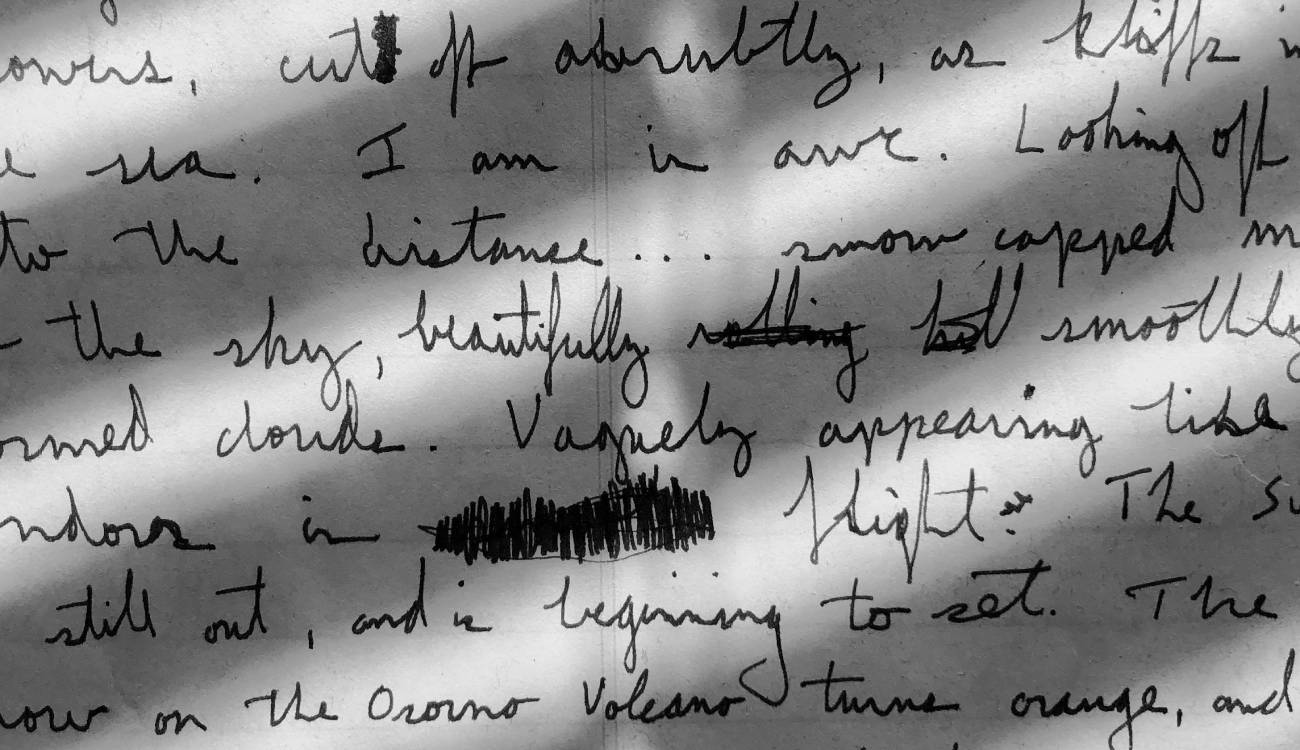 owers, cut off abrubtly, as kliffs
sea. I am in awe. Looking off
to the distance... snow capped
the sky, beautifully smoothly
ormed clouds. Vaguely appearing like
ndors in flight. The su
still out, and is beginning to set. The
now on the Osorno Volcano turns orange, and